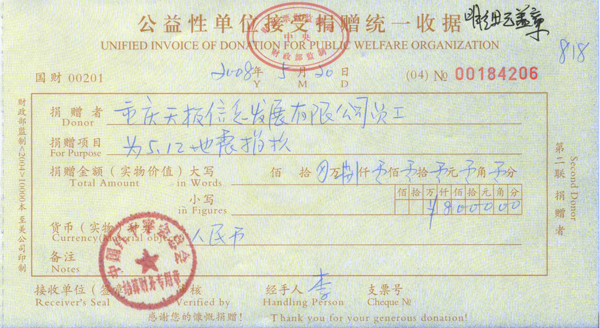 公益性单位接受捐赠统一收据
UNIFIED INVOICE OF DONATION FOR PUBLIC WELFARE ORGANIZATION
中央
财政部监制
818
国财 00201
2008 年 5 月 20 日
Y M D
(04) № 00184206
捐赠者 重庆天极信息发展有限公司员工
Donor
捐赠项目 为5.12地震捐款
For Purpose
捐赠金额（实物价值）大写 佰 拾 万 仟 佰 拾 元 角 分
Total Amount in Words
小写 佰 拾 万 仟 佰 拾 元 角 分
in Figures ¥8000000
货币（实物 人民币
Currency(Material objects)
备注
Notes
中国 总会
财务专用章
接收单位 核 经手人 李 支票号
Receiver's Seal Verified by Handling Person Cheque №
感谢您的慷慨捐赠！ Thank you for your generous donation!
第二联捐赠者
Second Donor